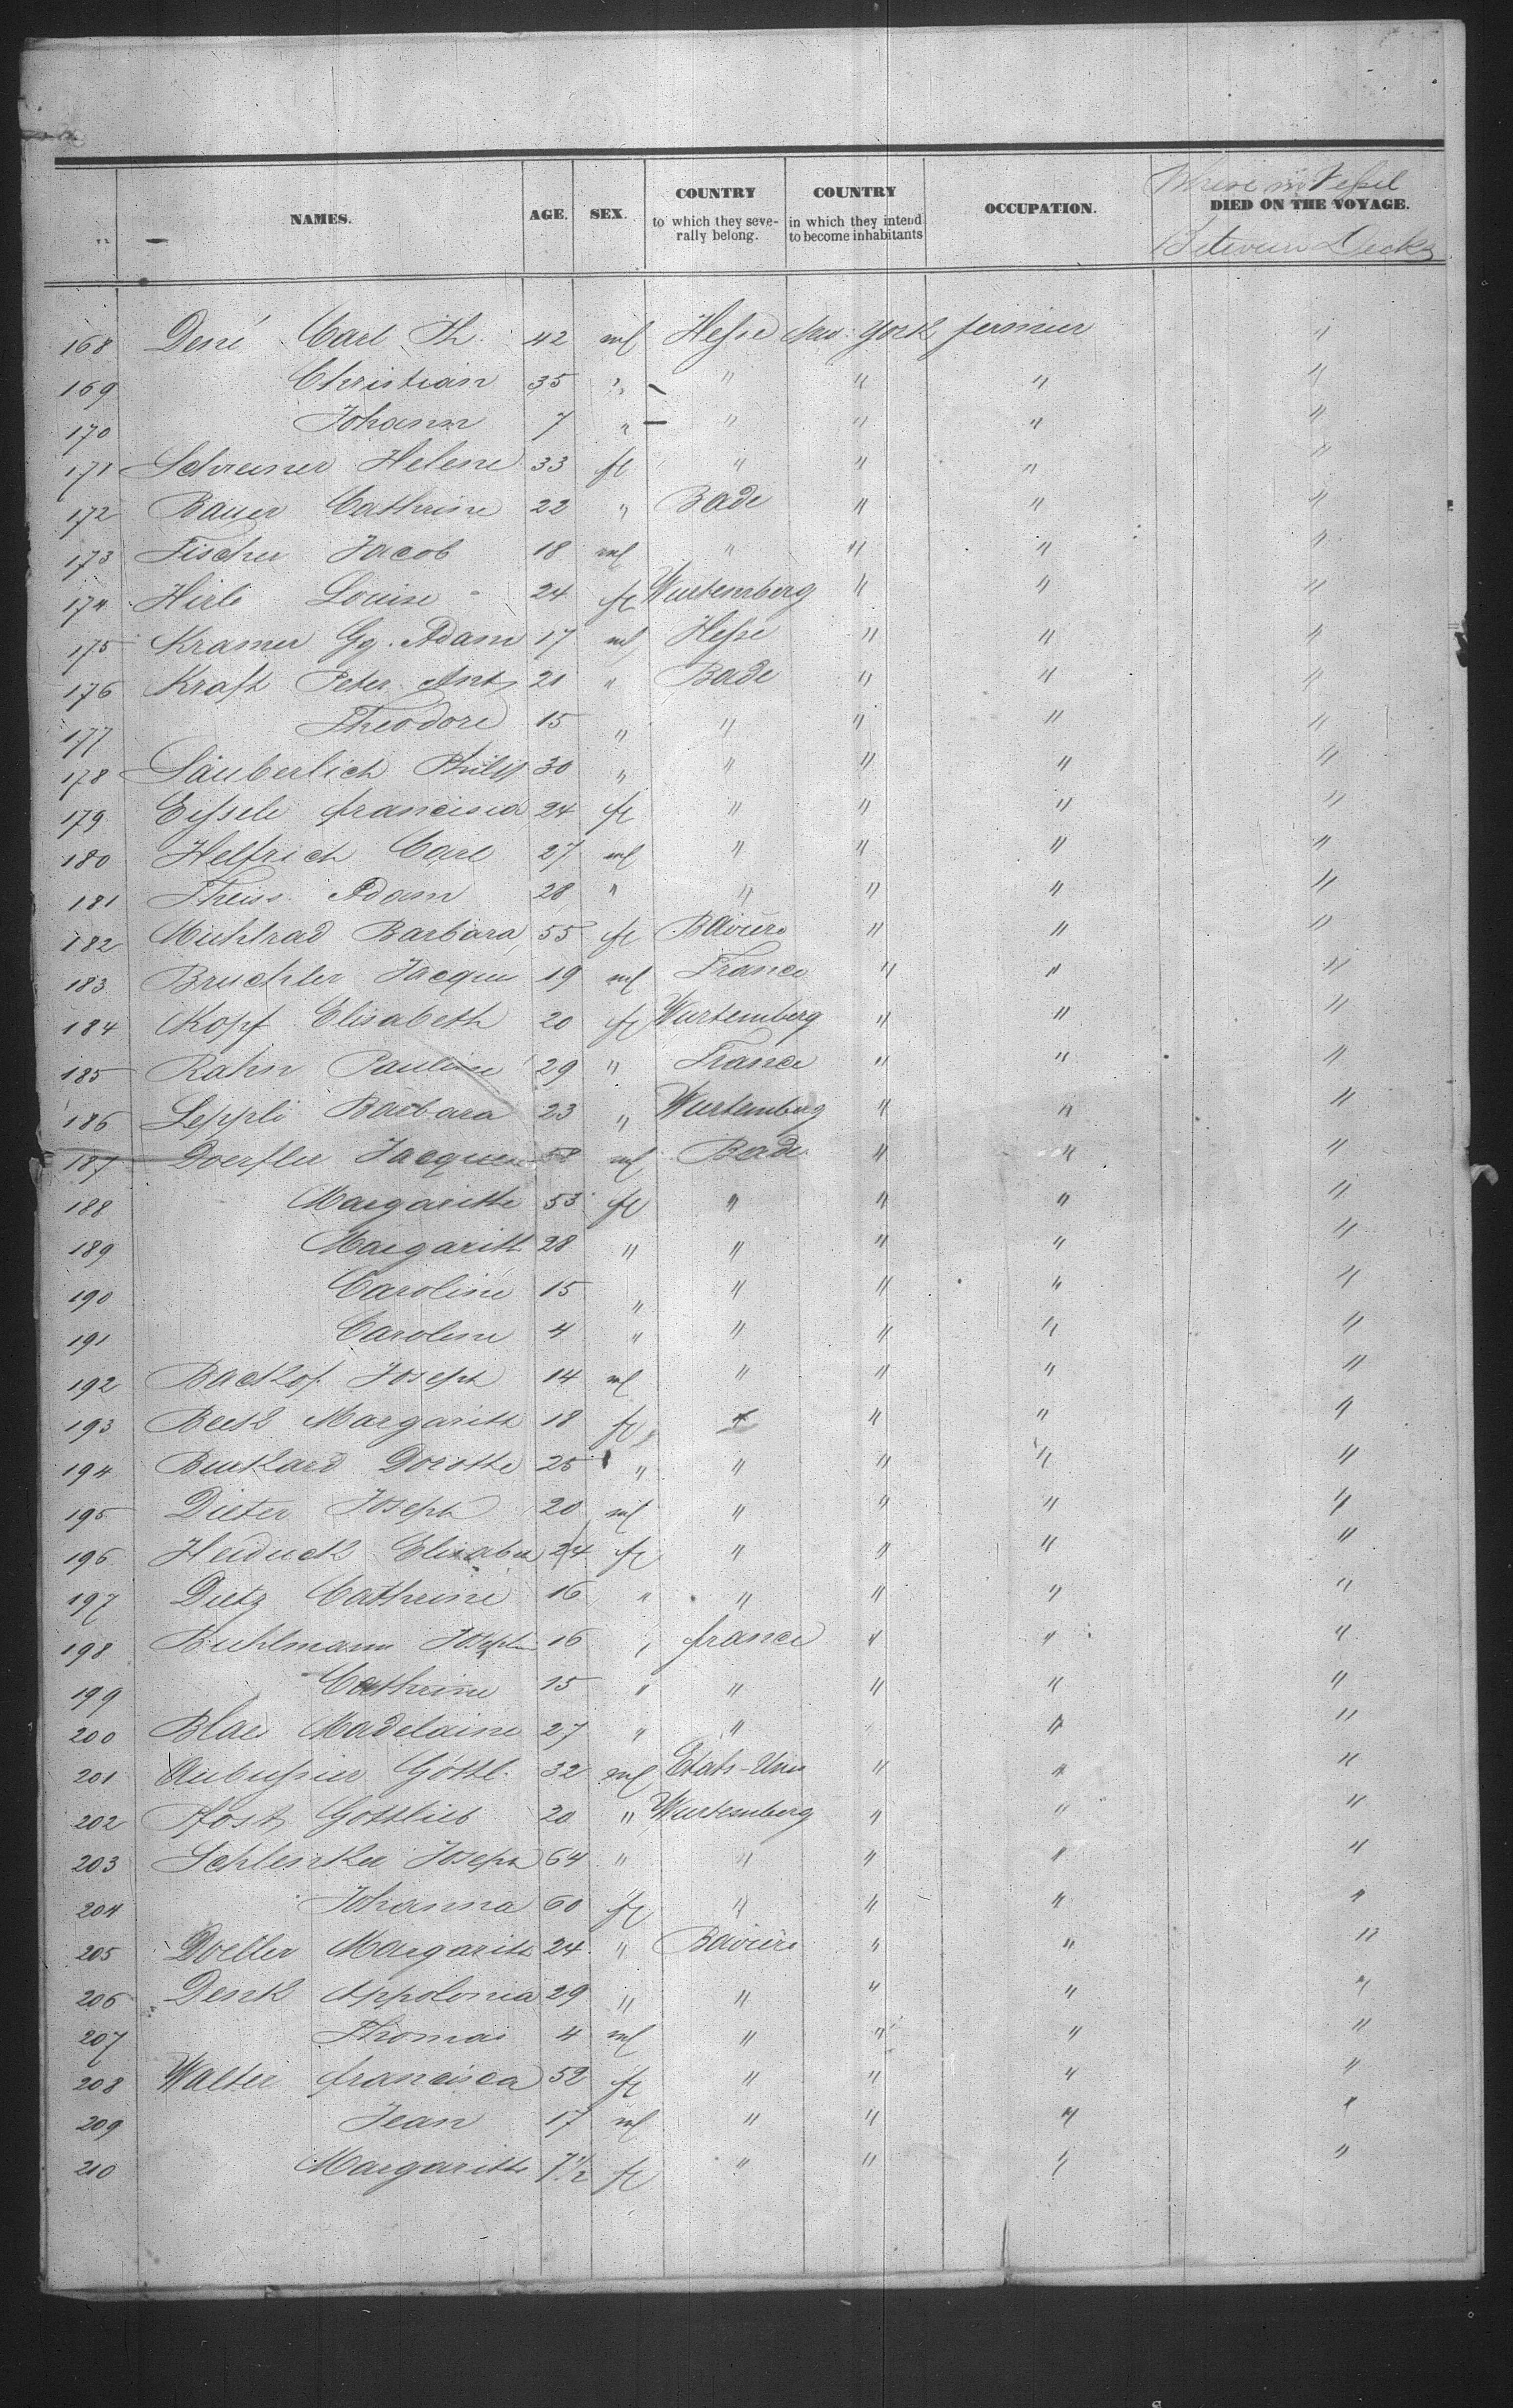 NAMES. AGE. SEX. COUNTRY to which they severally belong. COUNTRY in which they intend to become inhabitants OCCUPATION. Where in Vessel DIED ON THE VOYAGE. Between Decks
168 Carl Th. 42 ml Hesse New York fermier "
169 Christian 35 " " " " "
170 Johann 7 " " " " "
171 Schreiner Helene 33 fl " " " "
172 Bauer Cathrine 22 " Bade " " "
173 Fischer Jacob 18 ml " " " "
174 Hirle Louise 24 fl Wurtemberg " " "
175 Kramer Gg. Adam 17 ml Hesse " " "
176 Kraft Peter Ant 21 " Bade " " "
177 Theodore 15 " " " " "
178 Säuberlich Philip 30 " " " " "
179 Eissele francisca 24 fl " " " "
180 Helfrich Carl 27 ml " " " "
181 Theiss Adam 28 " " " " "
182 Barbara 55 fl Baviere " " "
183 Bruchler Jacques 19 ml France " " "
184 Kopf Elisabeth 20 fl Wurtemberg " " "
185 Rahn Pauline 29 " France " " "
186 Leppli Barbara 23 " Wurtemberg " " "
187 Doerfler Jacques 58 ml Bade " " "
188 Margarithe 53 fl " " " "
189 Margarith 28 " " " " "
190 Caroline 15 " " " " "
191 Caroline 4 " " " " "
192 Backof Joseph 14 ml " " " "
193 Margarith 18 fl " " " "
194 Burkard Dorothe 25 " " " " "
195 Dieter Joseph 20 ml " " " "
196 Heiduck Elisabet 24 fl " " " "
197 Dietz Cathrine 16 " " " " "
198 Buhlmann 16 " france " " "
199 Cathrine 15 " " " " "
200 Madelaine 27 " " " "
201 Gottl. 32 ml Etats-Unis " " "
202 Gottlieb 20 " Wurtemberg " " "
203 Schlenker Joseph 64 " " " " "
204 Johanna 60 fl " " " "
205 Margarith 24 " Baviere " " "
206 Denk Appolonia 29 " " " " "
207 Thomas 4 ml " " " "
208 Walter francisca 52 fl " " " "
209 Jean 17 ml " " " "
210 Margarithe fl " " " "